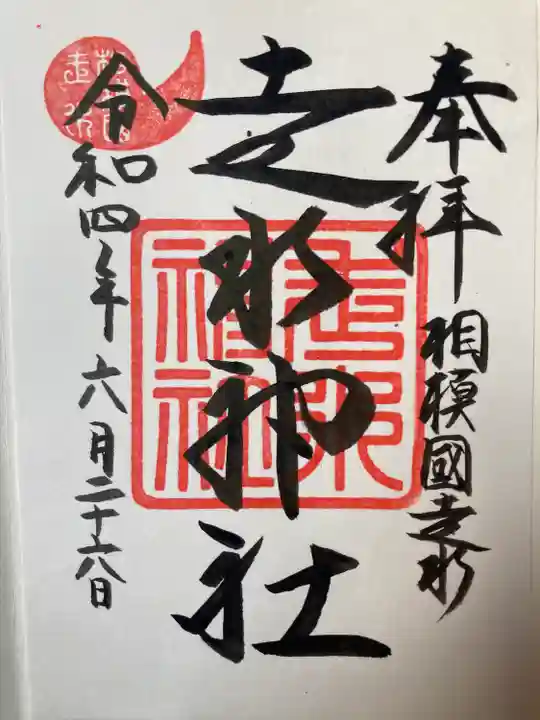 奉拝
相模國走水
走水神社
走水神社
令和四年六月二十六日
相模国
走水